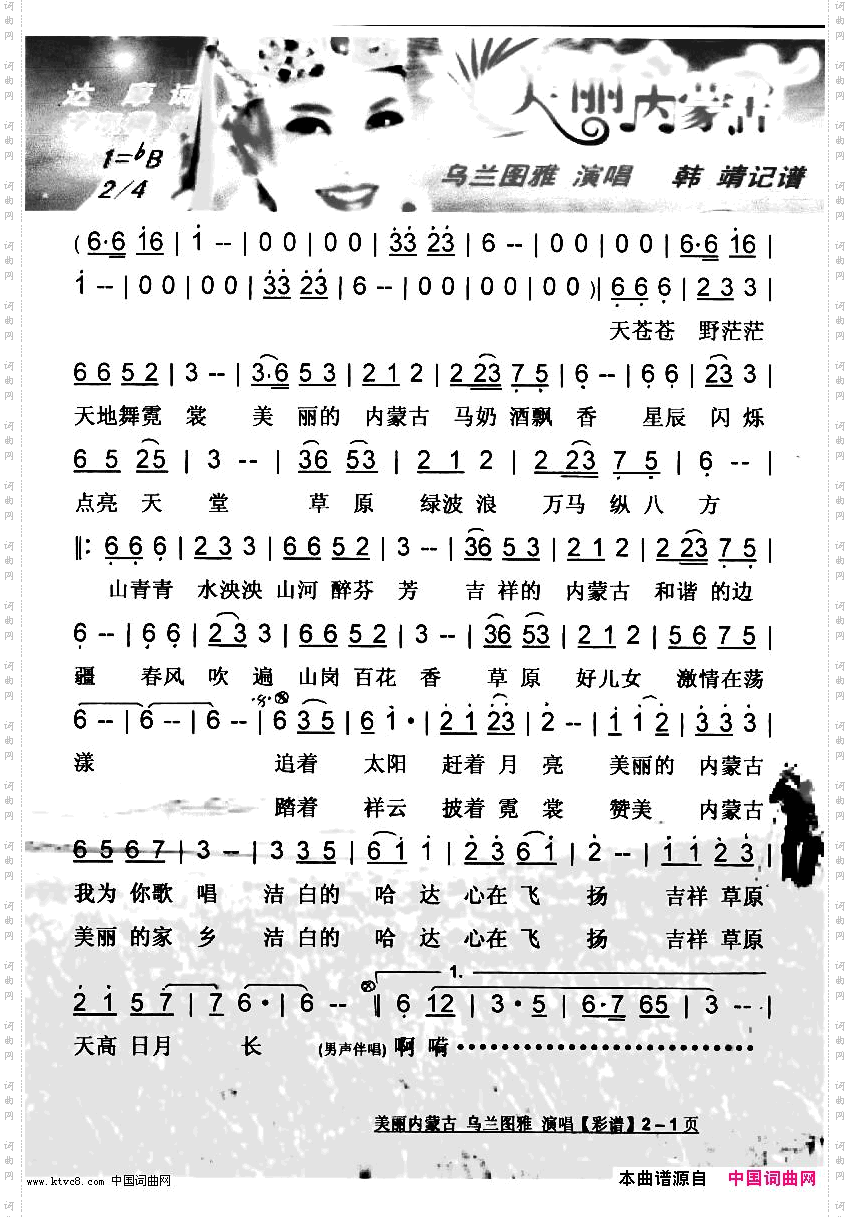 美丽内蒙古
达 康 词
1=♭B
2/4
乌兰图雅 演唱 韩 靖记谱
(6·6 i6 | i -- | 0 0 | 0 0 | 33 23 | 6 -- | 0 0 | 0 0 | 6·6 i6 |
i -- | 0 0 | 0 0 | 33 23 | 6 -- | 0 0 | 0 0 | 0 0 )‖ 6 6 6 | 2 3 3 |
天苍苍 野茫茫
6 6 5 2 | 3 -- | 3·6 5 3 | 2 1 2 | 2 23 7 5 | 6 -- | 6 6 | 23 3 |
天地舞霓 裳 美 丽的 内蒙古 马奶 酒飘 香 星辰 闪 烁
6 5 25 | 3 -- | 36 53 | 2 1 2 | 2 23 7 5 | 6 -- |
点亮 天 堂 草 原 绿波 浪 万马 纵 八 方
‖: 6 6 6 | 2 3 3 | 6 6 5 2 | 3 -- | 36 5 3 | 2 1 2 | 2 23 7 5 |
山青青 水泱泱 山河 醉芬 芳 吉 祥的 内蒙古 和谐 的边
6 -- | 6 6 | 2 3 3 | 6 6 5 2 | 3 -- | 36 53 | 2 1 2 | 5 6 7 5 |
疆 春风 吹 遍 山岗 百花 香 草 原 好儿女 激情在荡
6 -- | 6 -- | 6 -- | 6 3 5 | 6 i · | 2 i 23 | 2 -- | i i 2 | 3 3 3 |
漾 追着 太阳 赶着 月 亮 美丽的 内蒙古
踏着 祥云 披着 霓 裳 赞美 内蒙古
6 5 6 7 | 3 -- | 3 3 5 | 6 i i | 2 3 6 i | 2 -- | i i 2 3 |
我为 你歌 唱 洁 白的 哈 达 心在 飞 扬 吉祥 草原
美丽 的家 乡 洁 白的 哈 达 心在 飞 扬 吉祥 草原
1.
2 i 5 7 | 7 6 · | 6 -- ‖ 6 12 | 3 · 5 | 6·7 65 | 3 -- · |
天高 日月 长 (男声伴唱) 啊 嗬••••••••••••••••••••••••••••
美丽内蒙古 乌兰图雅 演唱【彩谱】2－1页
www.ktvc8.com 中国词曲网
本曲谱源自 中国词曲网